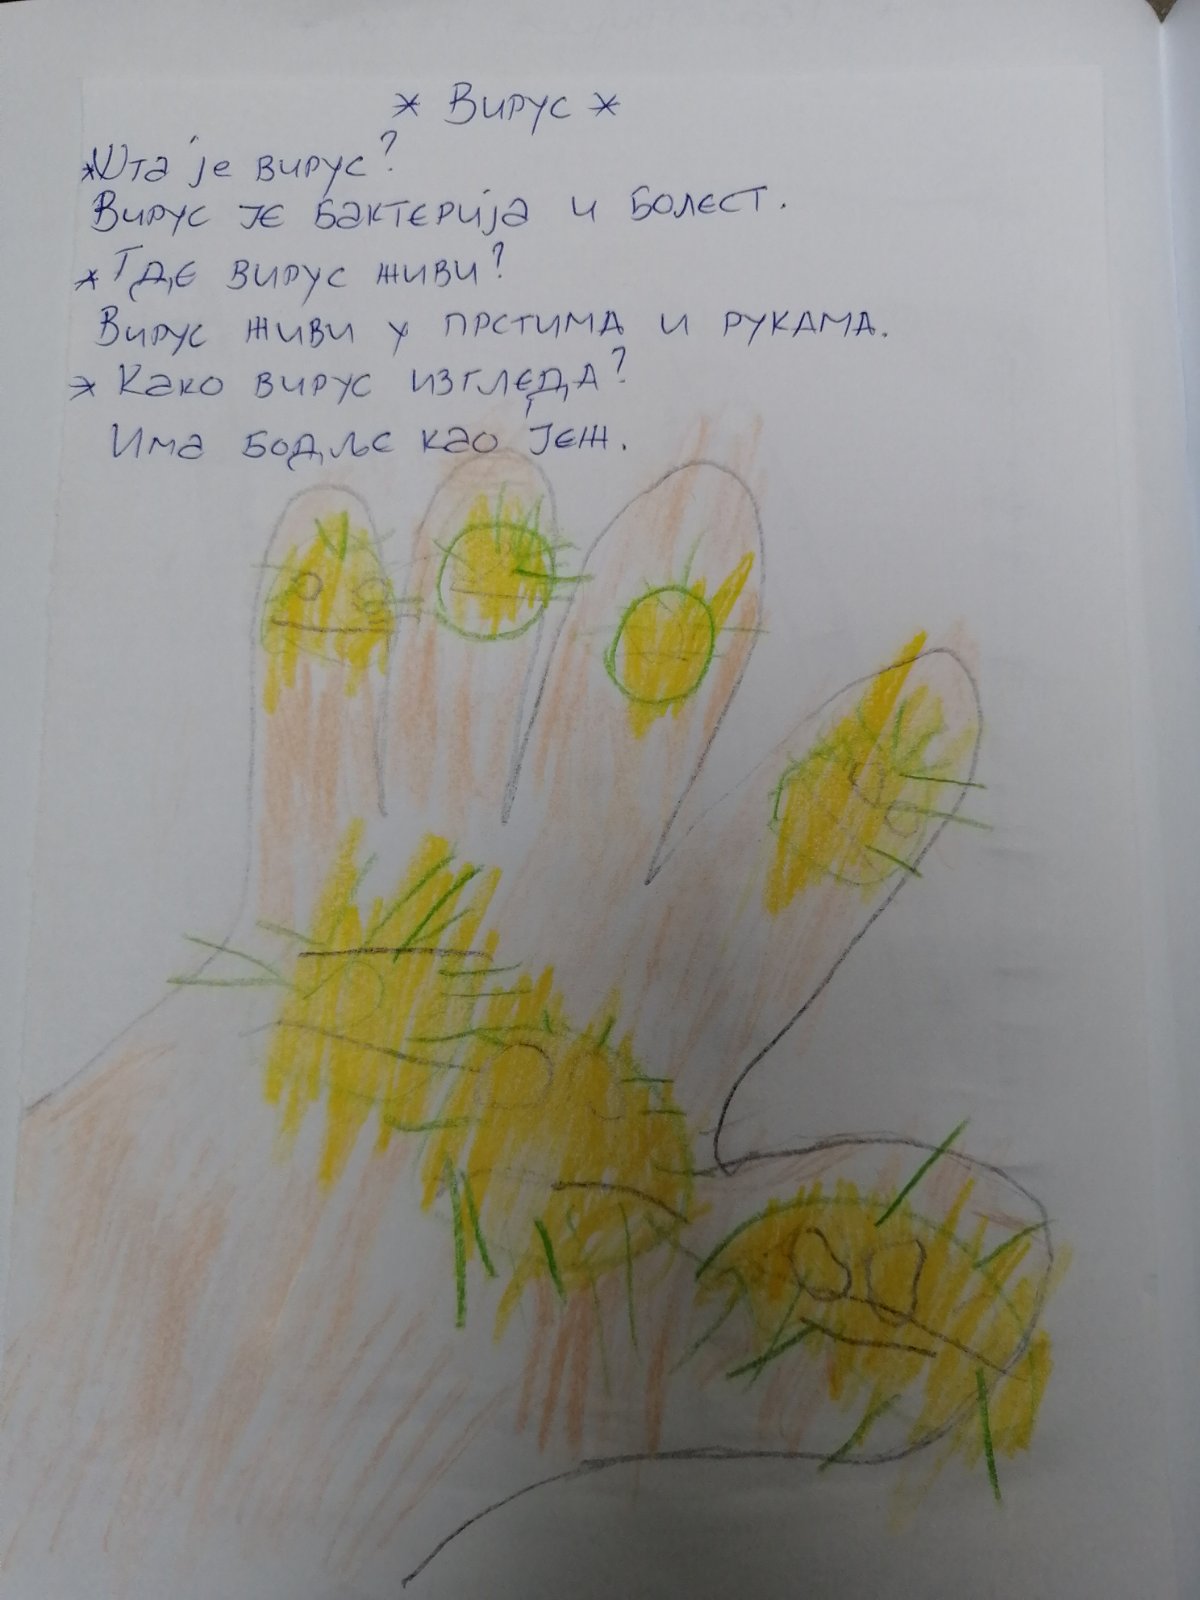 * Вирус *
*Шта је вирус?
Вирус је бактерија и болест.
* Где вирус живи?
Вирус живи у прстима и рукама.
* Како вирус изгледа?
Има бодље као јеж.